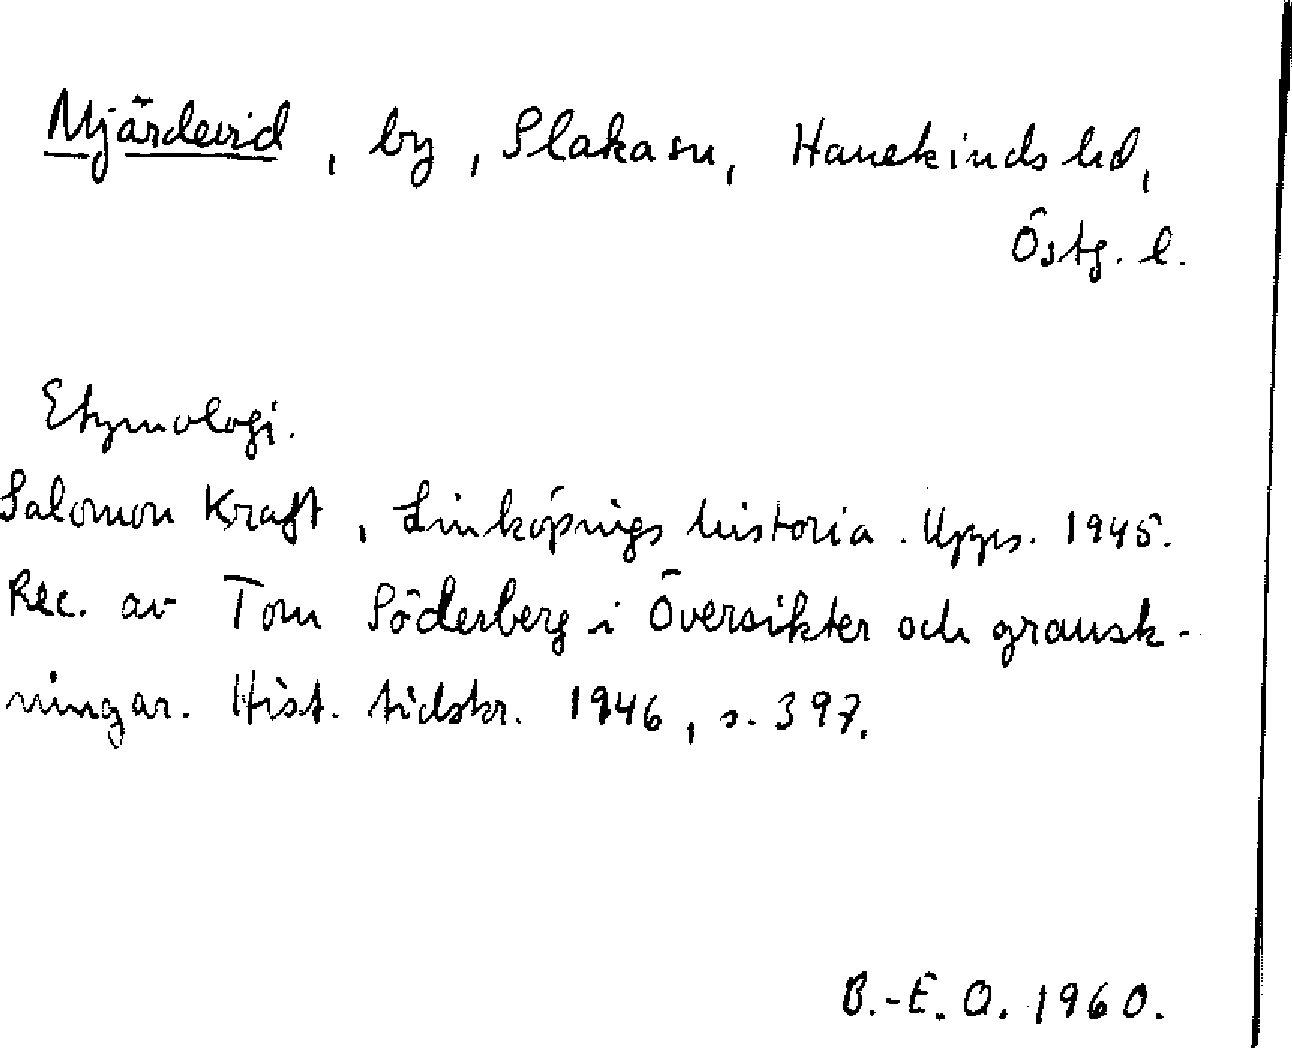 Mjärdevid, by, Slaka sn, Hanekinds hd,
Östg. l.
Etymologi.
Salomon Kraft, Linköpings historia. Upps. 1945.
Rec. av Tom Söderberg i Översikter och gransk-
ningar. Hist. tidskr. 1946, s. 397.
B.-E. O. 1960.